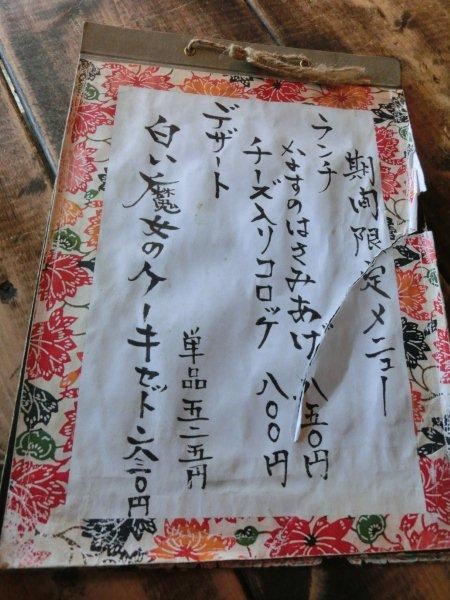 期間限定メニュー
ランチ
なすのはさみあげ 八五〇円
チーズ入りコロッケ 八〇〇円
デザート
白い魔女のケーキセット 八二〇円
単品 五二五円